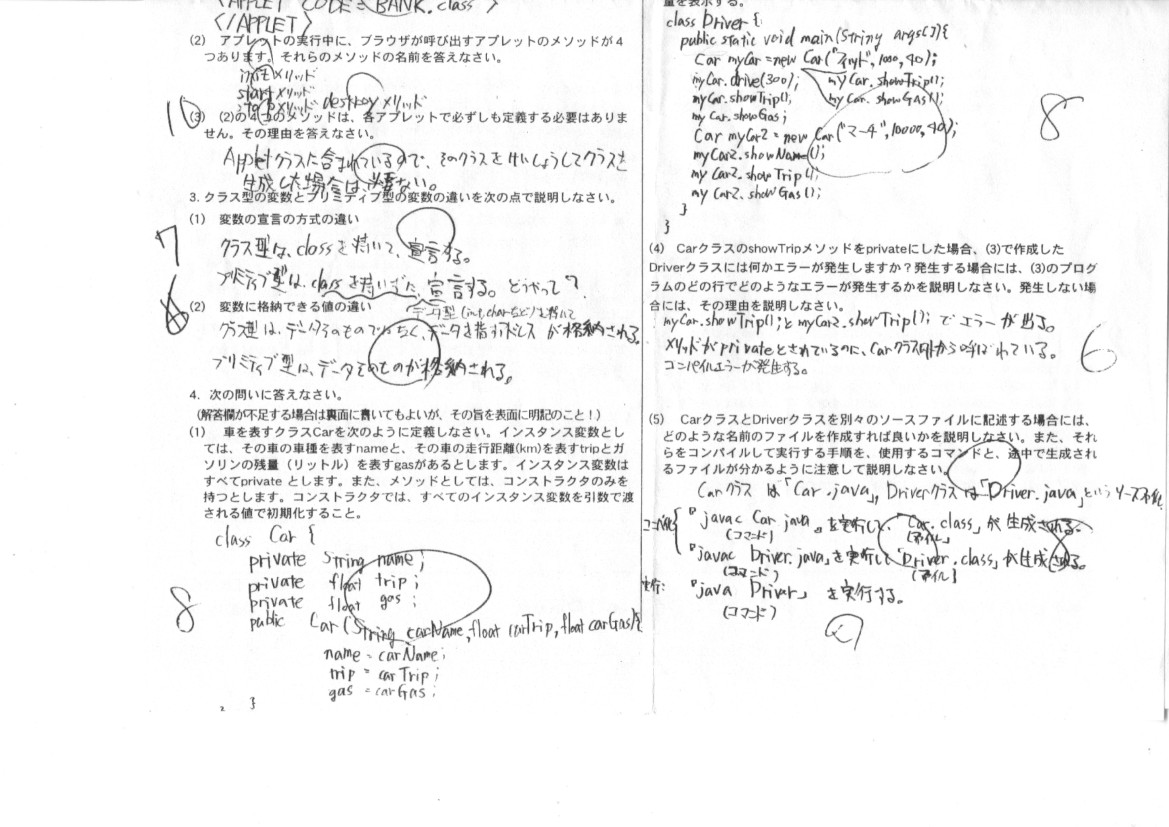 <APPLET CODE=BANK.class >
</APPLET>
(2) アプレットの実行中に、ブラウザが呼び出すアプレットのメソッドが4
つあります。それらのメソッドの名前を答えなさい。
initメソッド
startメソッド
stopメソッド destroyメソッド
10
(3) (2)の4つのメソッドは、各アプレットで必ずしも定義する必要はありま
せん。その理由を答えなさい。
Appletクラスに含まれているので、そのクラスをけいしょうしてクラスを
生成した場合は、必要ない。
3. クラス型の変数とプリミティブ型の変数の違いを次の点で説明しなさい。
(1) 変数の宣言の方式の違い
7
クラス型は、classを持いて、宣言する。
プリミティブ型は、classを持いずに、宣言する。どうやって?
(2) 変数に格納できる値の違い
データ型(int,charなど)を持いて
クラス型は、データそのものではなく、データを指すアドレスが格納される。
プリミティブ型は、データそのものが格納される。
4. 次の問いに答えなさい。
(解答欄が不足する場合は裏面に書いてもよいが、その旨を表面に明記のこと!)
(1) 車を表すクラスCarを次のように定義しなさい。インスタンス変数とし
ては、その車の車種を表すnameと、その車の走行距離(km)を表すtripとガ
ソリンの残量(リットル)を表すgasがあるとします。インスタンス変数は
すべてprivate とします。また、メソッドとしては、コンストラクタのみを
持つとします。コンストラクタでは、すべてのインスタンス変数を引数で渡
される値で初期化すること。
class Car {
private String name;
private float trip;
private float gas;
8
public Car(String carName,float carTrip,float carGas){
name = carName;
trip = carTrip;
gas = carGas;
}
量を表示する。
class Driver {
public static void main(String args[]){
Car myCar=new Car("フィット",1000,40);
myCar.drive(300); myCar.showTrip();
myCar.showTrip(); myCar.showGas();
myCar.showGas;
8
Car myCar2 = new Car("マーチ",10000,40);
myCar2.showName();
myCar2.showTrip();
myCar2.showGas();
}
}
(4) CarクラスのshowTripメソッドをprivateにした場合、(3)で作成した
Driverクラスには何かエラーが発生しますか?発生する場合には、(3)のプログ
ラムのどの行でどのようなエラーが発生するかを説明しなさい。発生しない場
合には、その理由を説明しなさい。
myCar.showTrip();とmyCar2.showTrip();でエラーが出る。
メソッドがprivateとされているのに、Carクラス外から呼ばれている。
コンパイルエラーが発生する。
6
(5) CarクラスとDriverクラスを別々のソースファイルに記述する場合には、
どのような名前のファイルを作成すれば良いかを説明しなさい。また、それ
らをコンパイルして実行する手順を、使用するコマンドと、途中で生成され
るファイルが分かるように注意して説明しなさい。
Carクラスは「Car.java」,Driverクラスは「Driver.java」というソース
コンパイル
「javac Car.java」を実行して、「Car.class」が生成される。
(コマンド) (ファイル)
「javac Driver.java」を実行して「Driver.class」が生成される。
(コマンド) (ファイル)
実行:「java Driver」を実行する。
(コマンド)